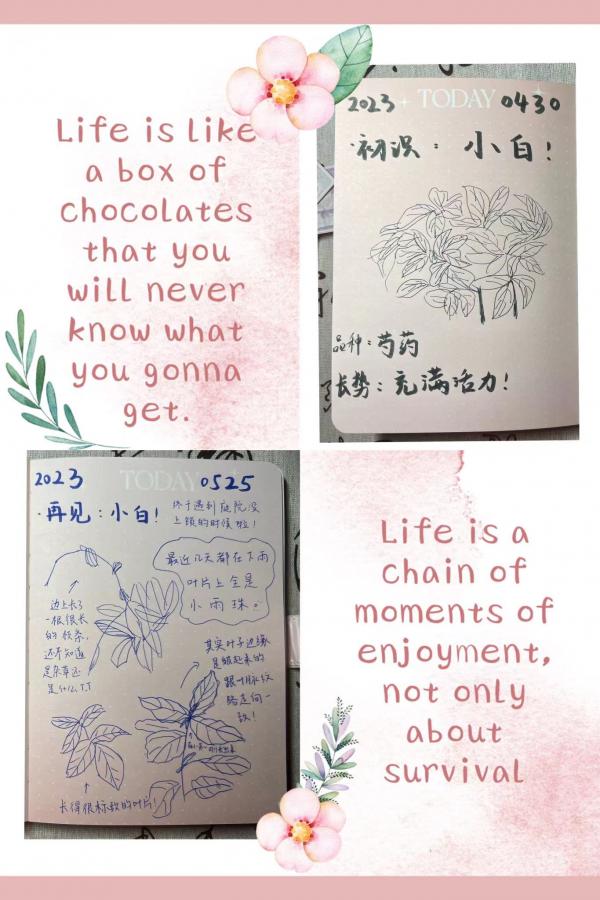 Life is like
a box of
chocolates
that you
will never
know what
you gonna
get.
2023 TODAY 0430
：小白！
品种：芍药
长势：充满活力！
2023 TODAY 0525
·再见：小白！
终于遇到庭院没
上锁的时候啦！
最近几天都在下雨
叶片上全是
小雨珠。
边上长了
一根很长
的枝条，
还不知道
是杂草还
是 T.T
其实叶子边缘
是 起来的
跟叶脉纹
路走向一
致！
长得很标致的叶片！
Life is a
chain of
moments of
enjoyment,
not only
about
survival